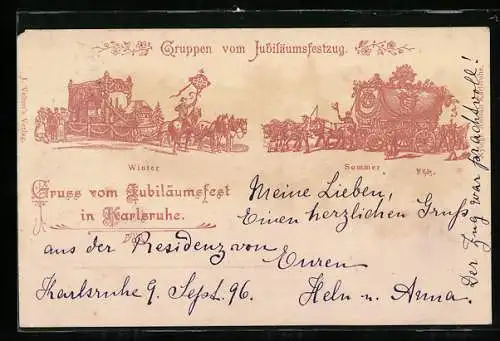 Gruppen vom Jubiläumsfestzug.
Winter
Sommer
Gruss vom Jubiläumsfest
in Karlsruhe.
Meine Lieben,
Einen herzlichen Gruß
aus der Residenz von
Euren
Karlsruhe 9. Sept. 96.
Heln u. Anna.
Der Zug war prachtvoll!